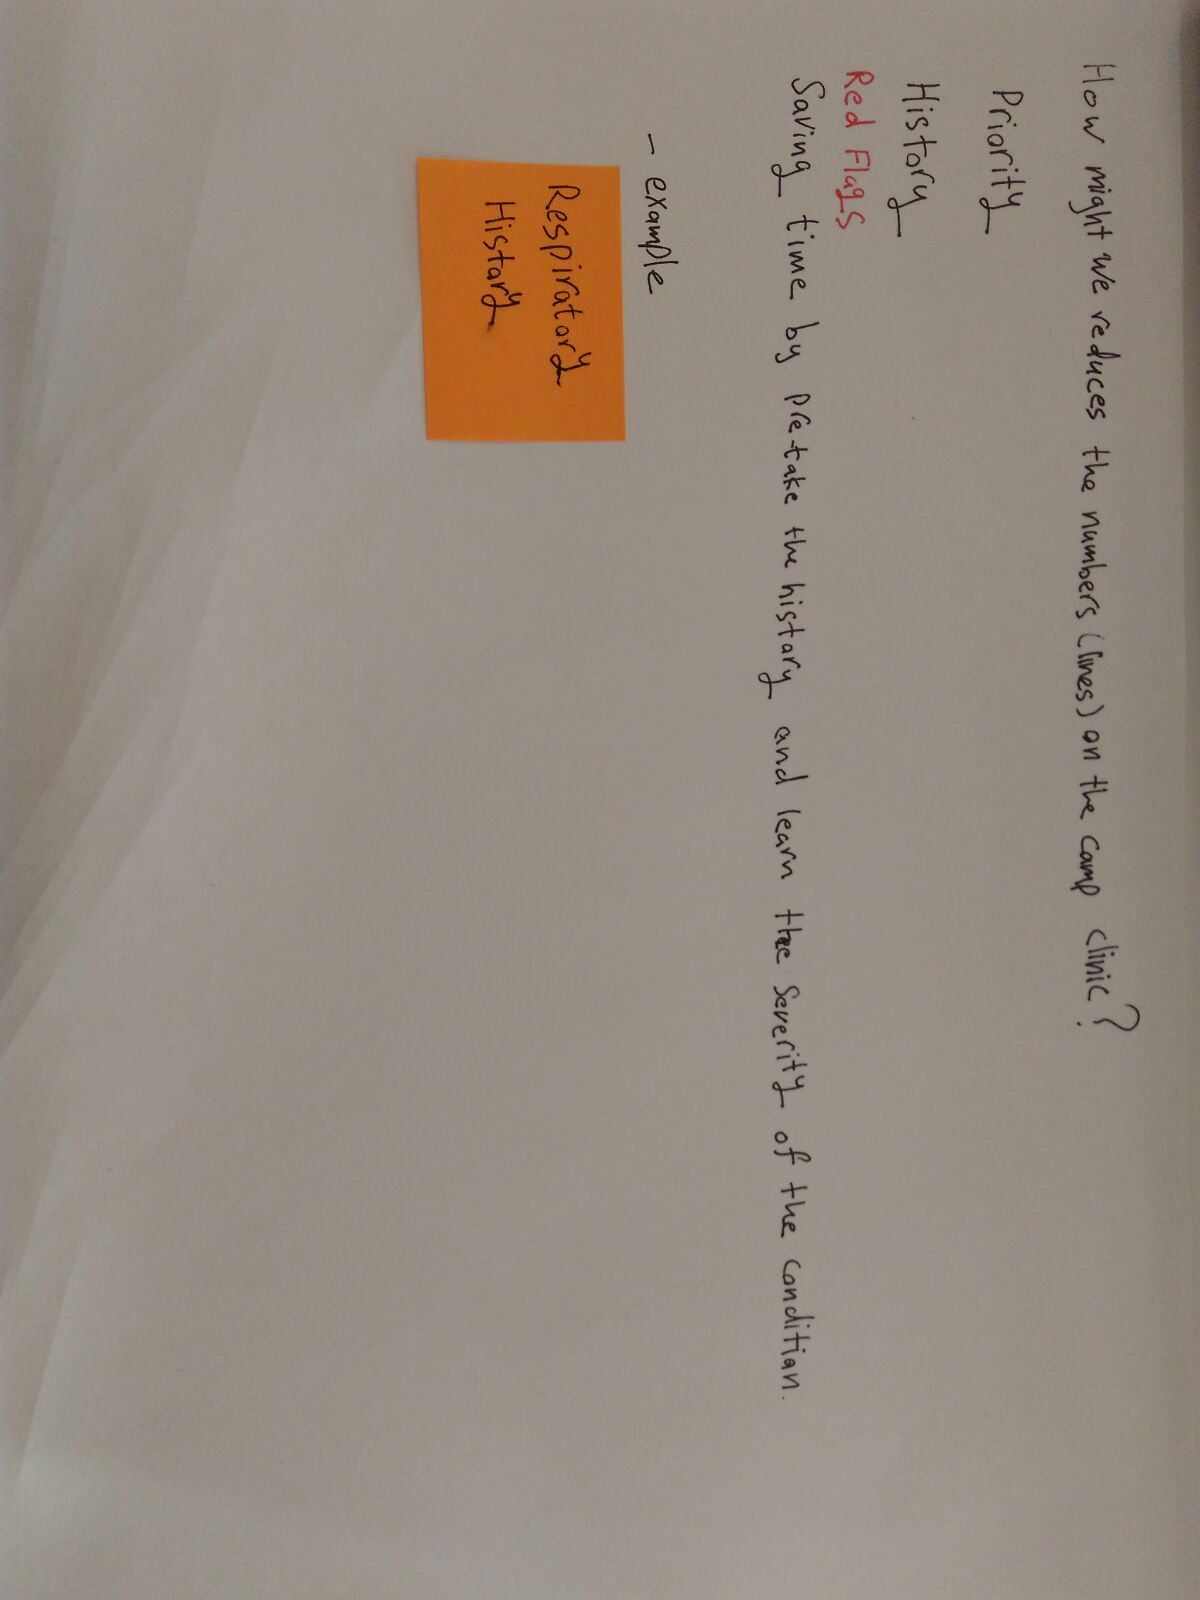 How might we reduces the numbers (lines) on the camp clinic?
Priority
History
Red Flags
Saving time by pre-take the history and learn the severity of the condition.
- example
Respiratory
History